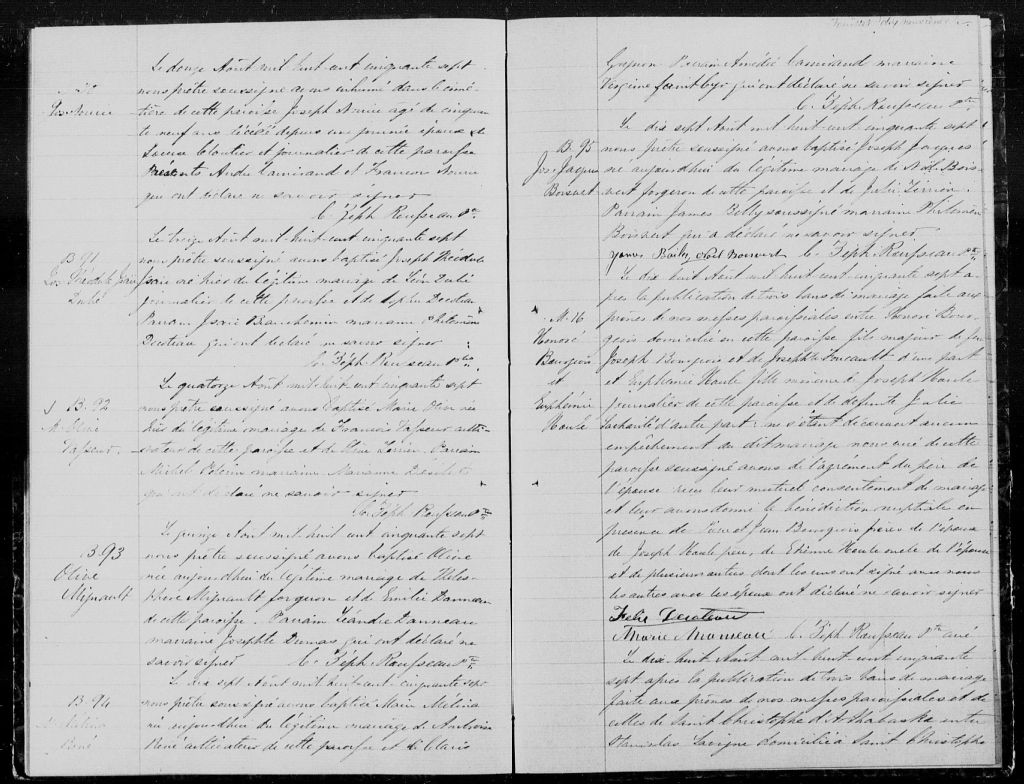 Le douze Août mil huit cent cinquante sept
nous prêtre soussigné avons inhumé dans le cime-
tière de cette paroisse Joseph agé de cinquan
te neuf ans décédé depuis une journée époux de
Louise Cloutier et journalier de cette paroisse
Présents André Camirand et François
qui ont déclaré ne savoir signer
C. Zéph Rousseau Ptre
B. 91
Jos. Théodule Isaïe
Dubé
Le treize Août mil huit cent cinquante sept
nous prêtre soussigné avons baptisé Joseph Théodule
Isaïe né hier du légitime mariage de Léon Dubé
journalier de cette paroisse et de Sophie Decoteau
Parrain Isaïe Beauchemin marraine Philomène
Decoteau qui ont déclaré ne savoir signer
C. Zéph Rousseau Ptre
B. 92
M. Olive
Vasseur
Le quatorze Août mil huit cent cinquante sept
nous prêtre soussigné avons baptisé Marie Olive née
hier du légitime mariage de François Vasseur culti-
vateur de cette paroisse et de Olive Parrain
Michel marraine Marianne
qui ont déclaré ne savoir signer
C. Zéph Rousseau Ptre
B. 93
Olive
Mignault
Le quinze Août mil huit cent cinquante sept
nous prêtre soussigné avons baptisé Olive
née aujourdhui du légitime mariage de Téles-
phore Mignault forgeron et de Emilie Janneau
de cette paroisse. Parrain Léandre Janneau
marraine Josephte Dumas qui ont déclaré ne
savoir signer C. Zéph Rousseau Ptre
B. 94
M. Mélina
René
Le dix sept Août mil huit cent cinquante sept
nous prêtre soussigné avons baptisé Marie Mélina
née aujourdhui du légitime mariage de Antoine
René cultivateur de cette paroisse et de Claris
Gagnon Parrain Amédée Camirand marraine
qui ont déclaré ne savoir signer
C. Zéph Rousseau Ptre
B. 95
Jos. Jacques
Boisvert
Le dix sept Août mil huit cent cinquante sept
nous prêtre soussigné avons baptisé Joseph Jacques
né aujourdhui du légitime mariage de Nöel Bois-
vert forgeron de cette paroisse et de Julie Térrien
Parrain James Bailly soussigné marraine Philomène
Boisvert qui a déclaré ne savoir signer
James Bailey Noël Boisvert C. Zéph Rousseau Ptre
M. 16
Honoré
Bourgeois
et
Euphémie
Houle
Le dix huit Août mil huit cent cinquante sept a
près la publication de trois bans de mariage faite aux
prônes de nos messes paroissiales entre Honoré Bour-
geois domicilié en cette paroisse fils majeur de feu
Joseph Bourgeois et de Josephte Foucault d'une part
et Euphémie Houle fille mineure de Joseph Houle
journalier de cette paroisse et de défunte Julie
d'autre part: ne s'étant découvert aucun
empêchement au dit mariage nous curé de cette
paroisse soussigné avons de l'agrément du père de
l'épouse reçu leur mutuel consentement de mariage
et leur avons donné la bénédiction nuptiale en
présence de et Jean Bourgeois frères de l'époux
de Joseph Houle père, de Etienne Houle oncle de l'épouse
et de plusieurs autres dont les uns ont signé avec nous
les autres avec les époux ont déclaré ne savoir signer
Felix Decoteau
Marie Morneau C. Zéph Rousseau Ptre curé
Le dix-huit Août mil-huit cent cinquante
sept après la publication de trois bans de mariage
faite aux prônes de nos messes paroissiales et de
celles de Saint Christophe d'Athabaska entre
Stanislas Lavigne domicilié à Saint Christophe